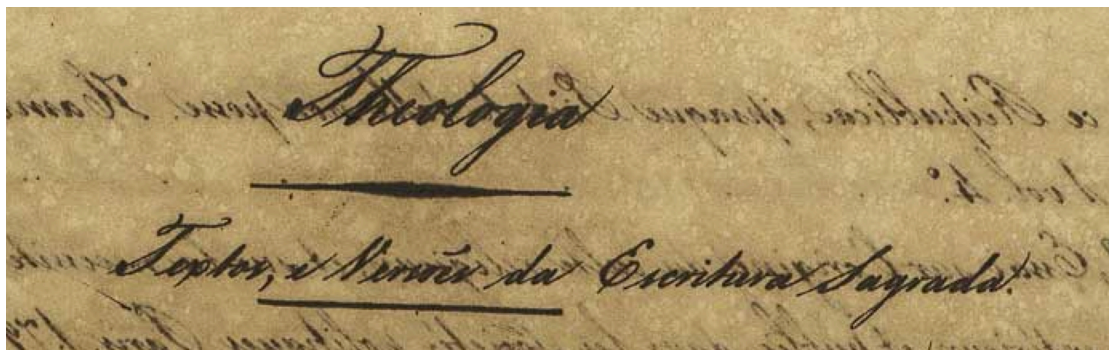 Theologia
Textos, e Versões da Escritura Sagrada.